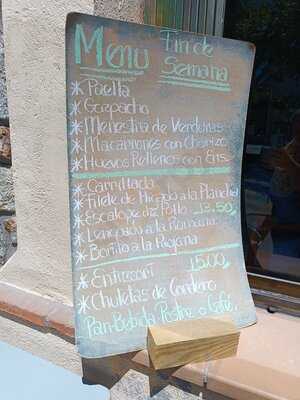 Menu Fin de Semana
* Paella
* Gazpacho
* Menestra de Verduras
* Macarrones con Chorizo
* Huevos Rellenos con Ens.
* Carrillada
* Filete de Higado a la Plancha
* Escalope de Pollo 13.50
* Lenguado a la Romana
* Bonito a la Riojana
* Entrecort 15.00
* Chuletas de Cordero
Pan-Bebida Postre o Café